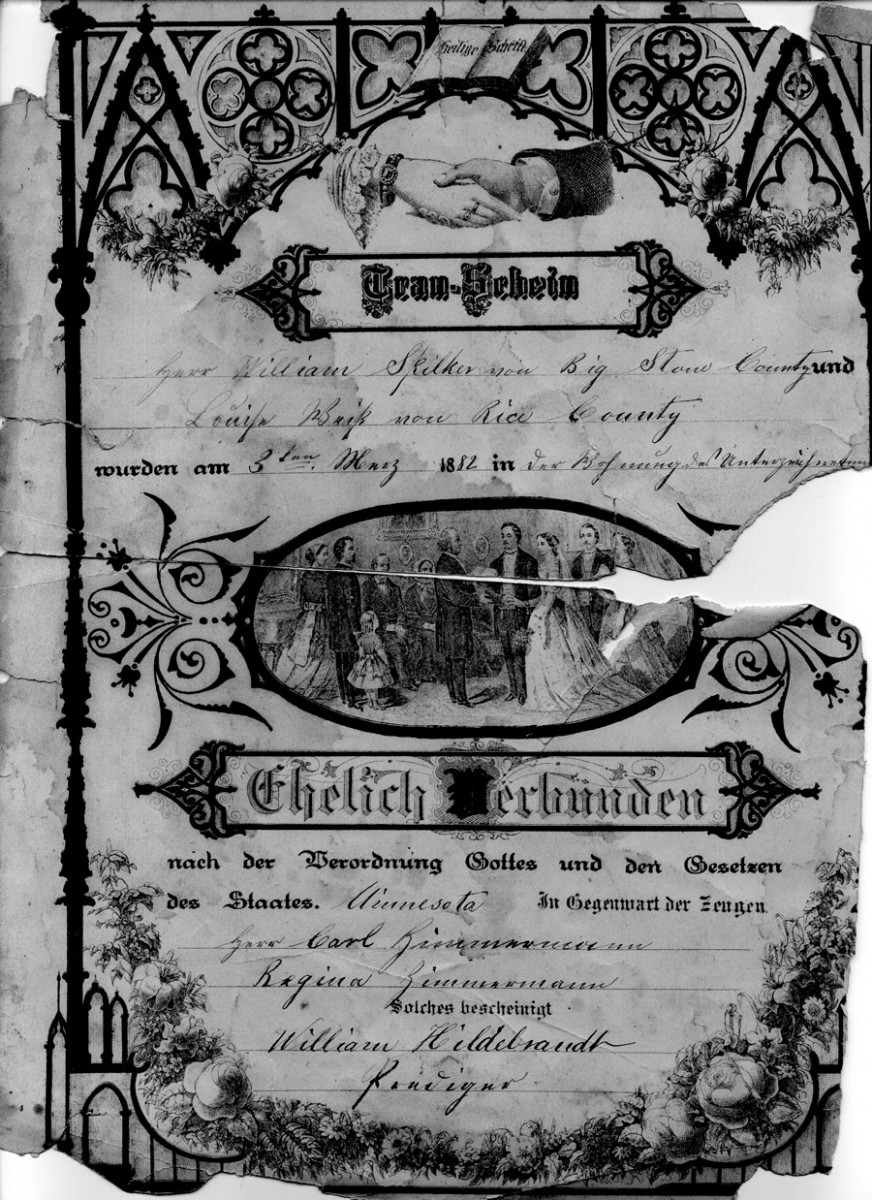 Heilige Schrift
Trau-Schein
Herr William Spilker von Big Stone County und
Louise Weiß von Rice County
wurden am 3ten. Merz 1882 in der Wohnung des Unterzeichneten
Ehelich Verbunden
nach der Verordnung Gottes und den Gesetzen
des Staates. Minnesota In Gegenwart der Zeugen.
Herr Carl Zimmermann
Regina Zimmermann
Solches bescheinigt
William Hildebrandt
Prediger